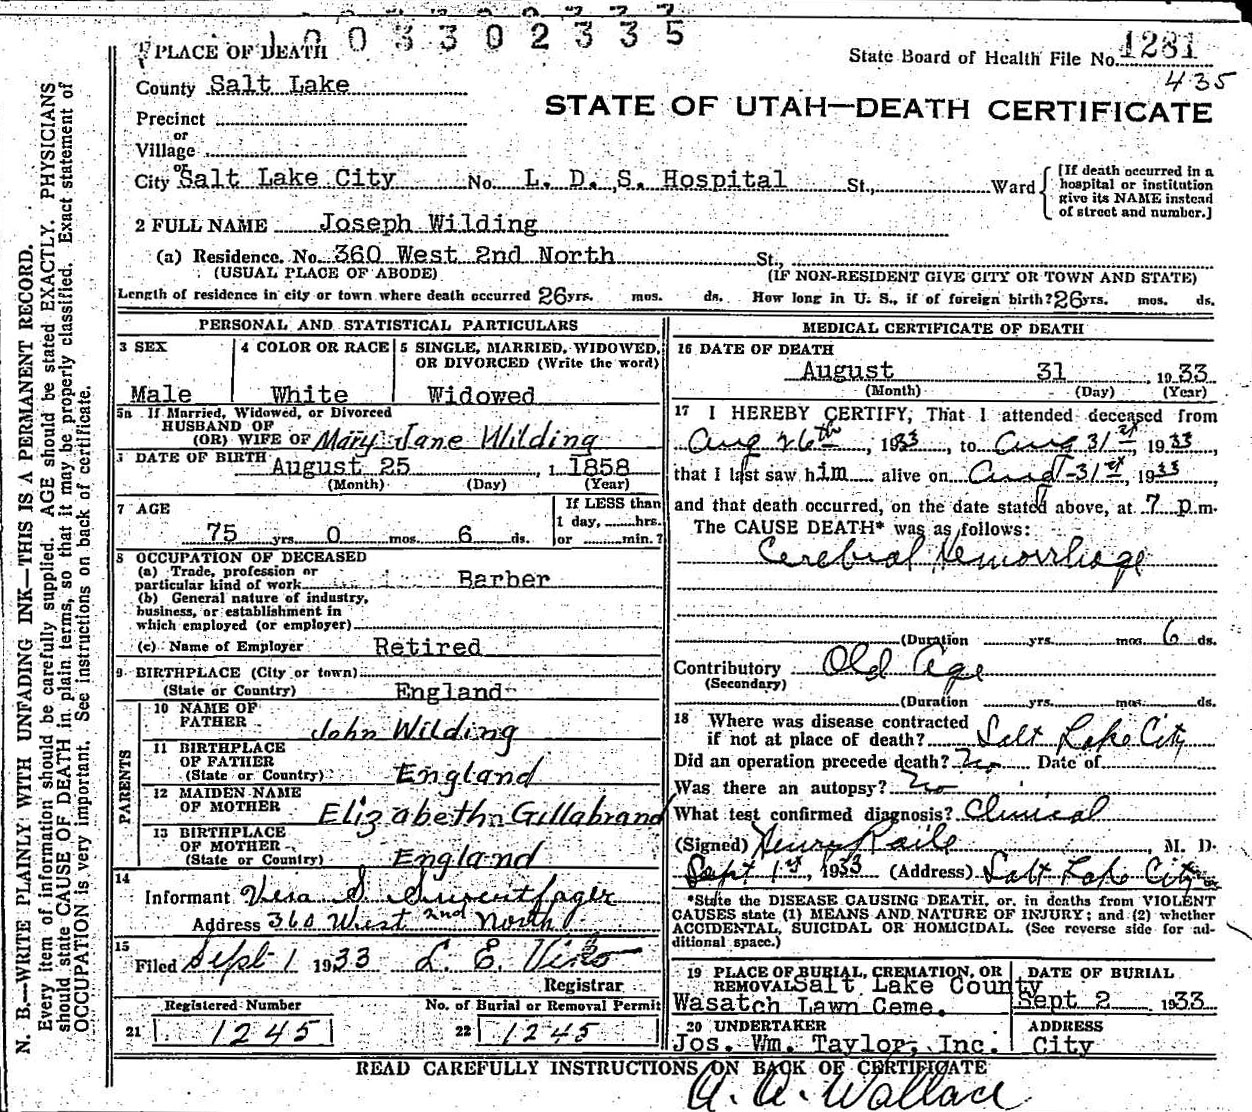 1003302335
PLACE OF DEATH
State Board of Health File No. 1281
435
County Salt Lake
STATE OF UTAH—DEATH CERTIFICATE
Precinct
or
Village
or
City Salt Lake City No. L. D. S. Hospital St., Ward
[If death occurred in a hospital or institution give its NAME instead of street and number.]
2 FULL NAME Joseph Wilding
(a) Residence. No. 360 West 2nd North St.,
(USUAL PLACE OF ABODE) (IF NON-RESIDENT GIVE CITY OR TOWN AND STATE)
Length of residence in city or town where death occurred 26 yrs. mos. ds. How long in U. S., if of foreign birth? 26 yrs. mos. ds.
PERSONAL AND STATISTICAL PARTICULARS
3 SEX
Male
4 COLOR OR RACE
White
5 SINGLE, MARRIED, WIDOWED, OR DIVORCED (Write the word)
Widowed
5a If Married, Widowed, or Divorced
HUSBAND OF
(OR) WIFE OF Mary Jane Wilding
DATE OF BIRTH August 25, 1858
(Month) (Day) (Year)
7 AGE
75 yrs. 0 mos. 6 ds.
If LESS than
1 day, hrs.
or min.?
8 OCCUPATION OF DECEASED
(a) Trade, profession or
particular kind of work Barber
(b) General nature of industry,
business, or establishment in
which employed (or employer)
(c) Name of Employer Retired
9 BIRTHPLACE (City or town)
(State or Country) England
PARENTS
10 NAME OF
FATHER John Wilding
11 BIRTHPLACE
OF FATHER
(State or Country) England
12 MAIDEN NAME
OF MOTHER Elizabethn Gillabrand
13 BIRTHPLACE
OF MOTHER
(State or Country) England
14
Informant
Address 360 West 2nd North
15
Filed Sept 1 1933 L. E.
Registrar
Registered Number No. of Burial or Removal Permit
21 1245 22 1245
MEDICAL CERTIFICATE OF DEATH
16 DATE OF DEATH
August 31, 1933
(Month) (Day) (Year)
17 I HEREBY CERTIFY, That I attended deceased from
Aug 26th, 1933, to Aug 31st, 1933,
that I last saw him alive on Aug 31st, 1933,
and that death occurred, on the date stated above, at 7 p.m.
The CAUSE DEATH* was as follows:
Cerebral Hemorrhage
(Duration yrs. mos. 6 ds.
Contributory Old Age
(Secondary)
(Duration yrs. mos. ds.
18 Where was disease contracted
if not at place of death? Salt Lake City
Did an operation precede death? No Date of
Was there an autopsy? No
What test confirmed diagnosis? Clinical
(Signed) Henry Raile, M. D.
Sept 1st, 1933 (Address) Salt Lake City
*State the DISEASE CAUSING DEATH, or, in deaths from VIOLENT
CAUSES state (1) MEANS AND NATURE OF INJURY; and (2) whether
ACCIDENTAL, SUICIDAL OR HOMICIDAL. (See reverse side for ad-
ditional space.)
19 PLACE OF BURIAL, CREMATION, OR
REMOVAL Salt Lake County
Wasatch Lawn Ceme.
DATE OF BURIAL
Sept 2 1933
20 UNDERTAKER
Jos. Wm. Taylor, Inc.
ADDRESS
City
READ CAREFULLY INSTRUCTIONS ON BACK OF CERTIFICATE
A. A. Wallace
N. B.—WRITE PLAINLY WITH UNFADING INK—THIS IS A PERMANENT RECORD.
Every item of information should be carefully supplied. AGE should be stated EXACTLY. PHYSICIANS
should state CAUSE OF DEATH in plain terms, so that it may be properly classified. Exact statement of
OCCUPATION is very important. See instructions on back of certificate.